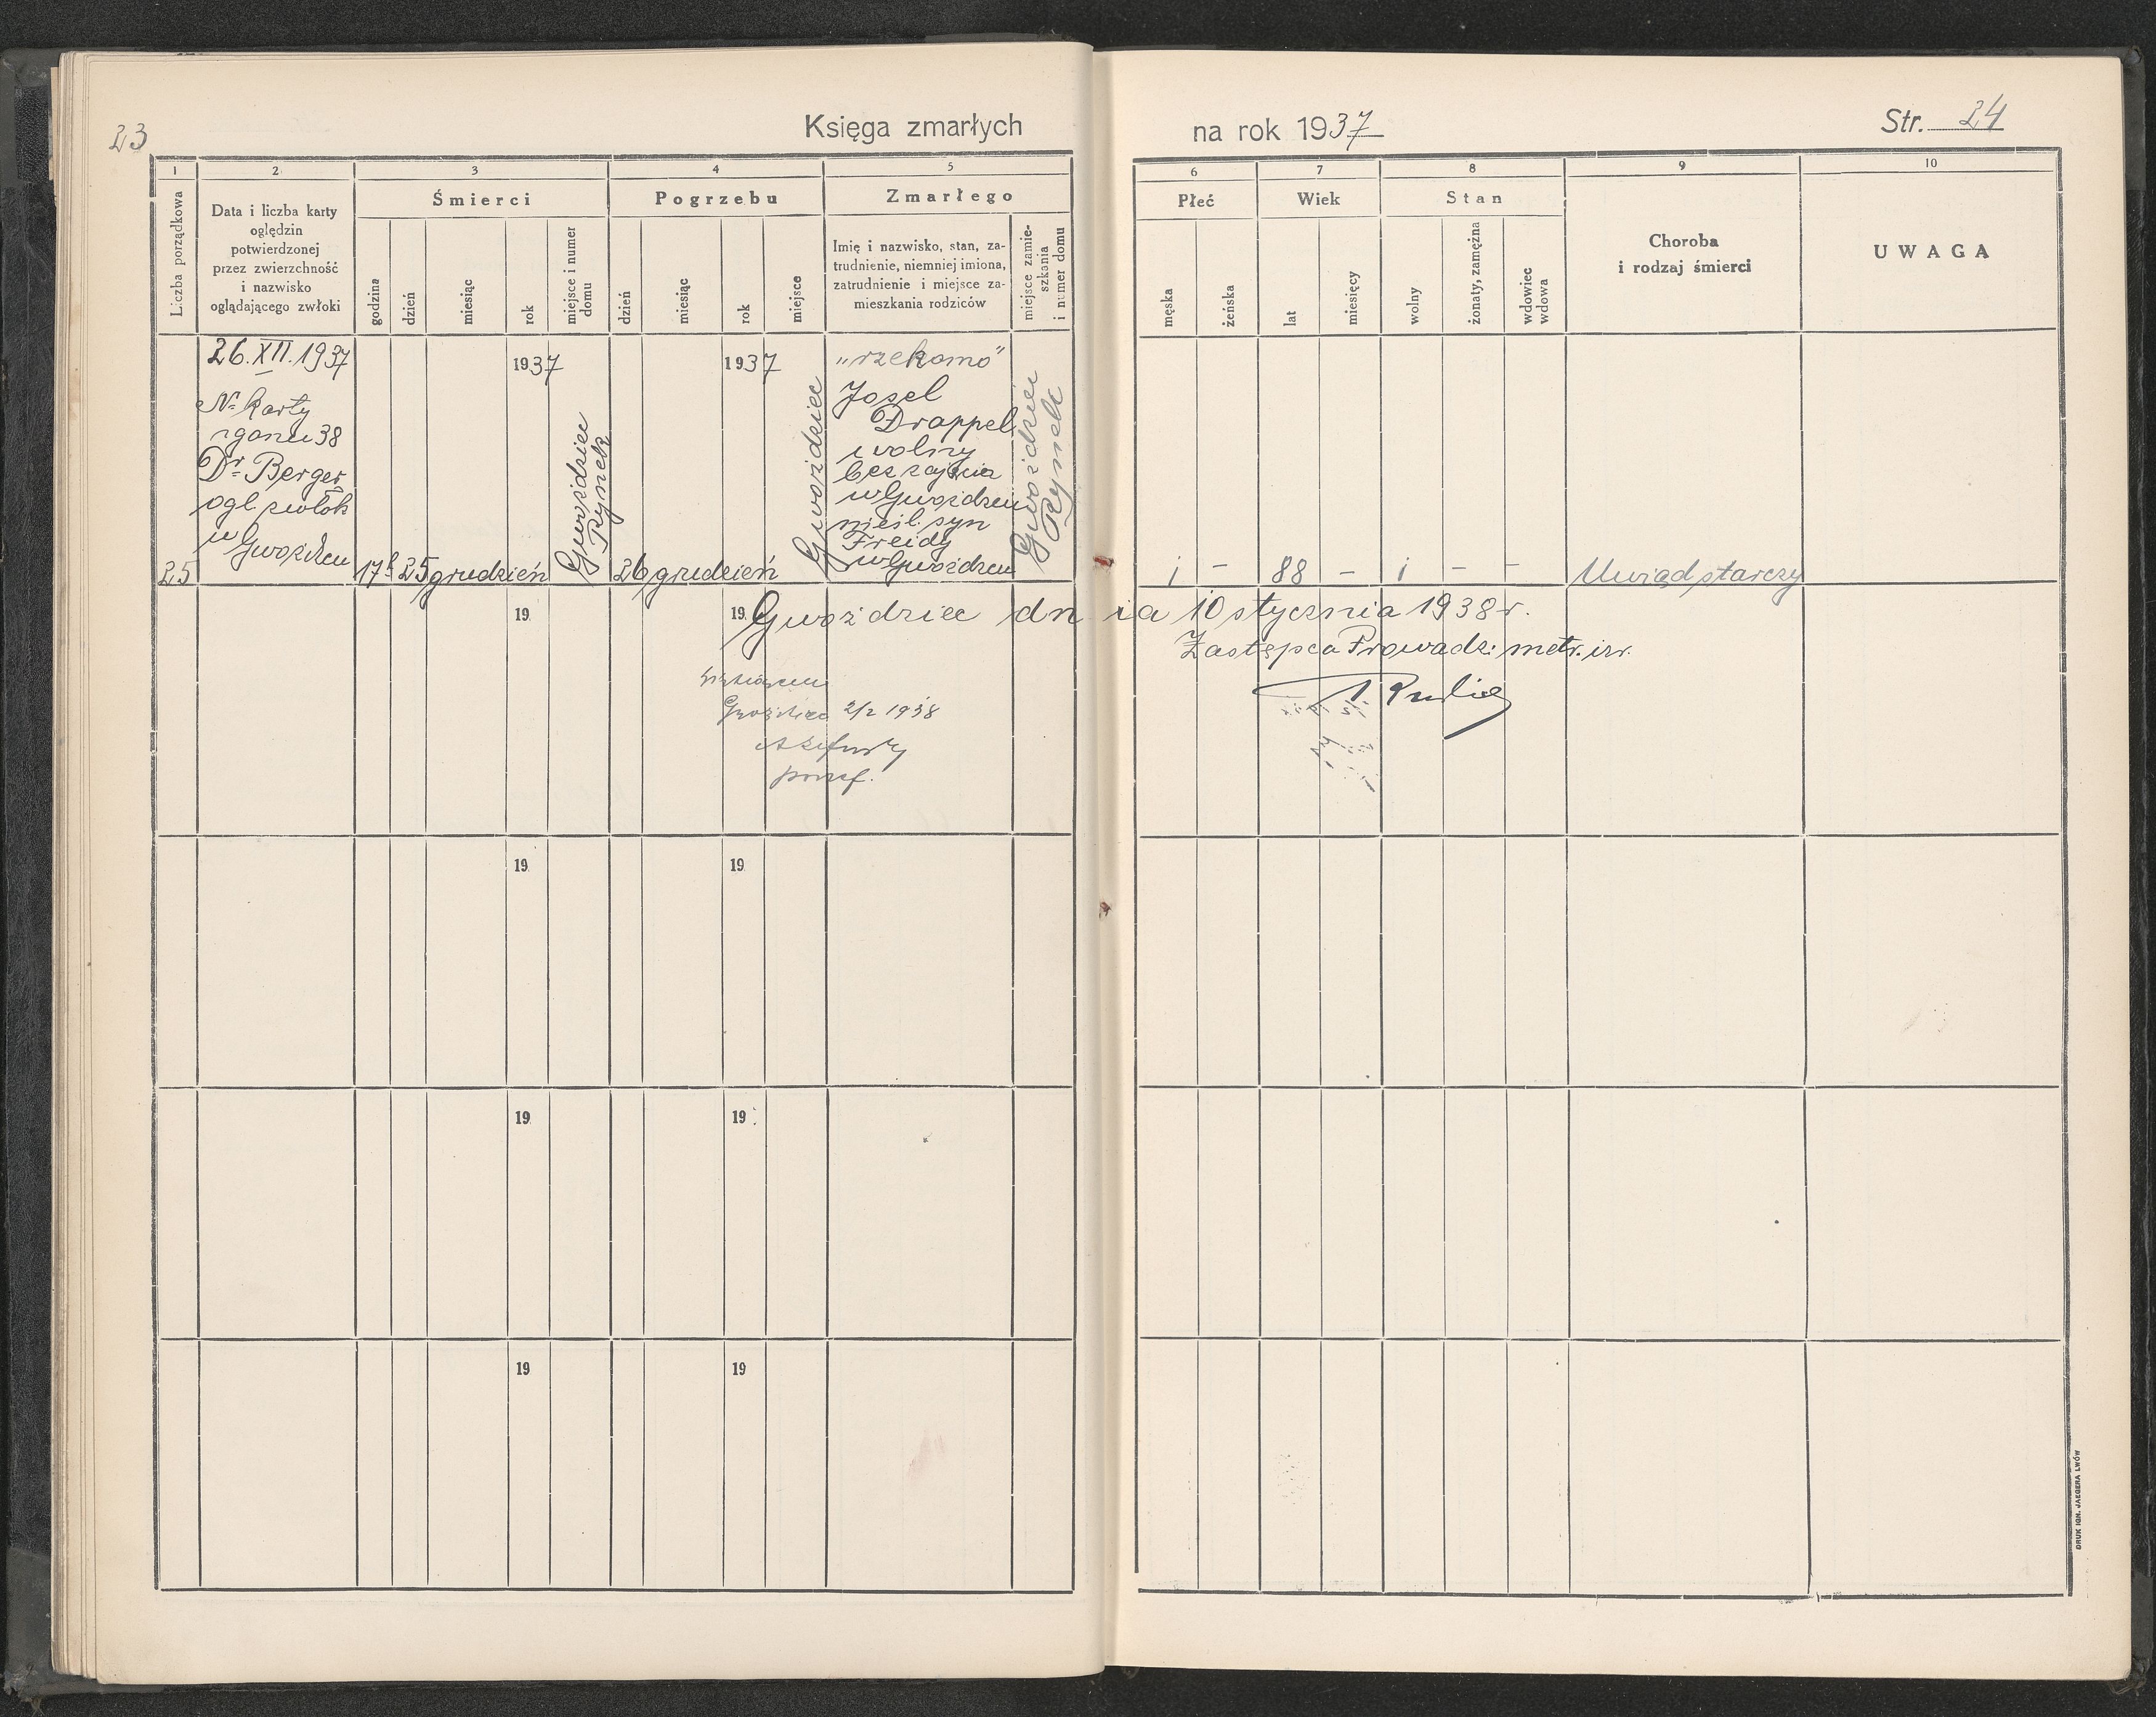 23
Księga zmarłych
na rok 1937
Str. 24
1
2
3
4
5
6
7
8
9
10
Liczba porządkowa
Data i liczba karty
oględzin
potwierdzonej
przez zwierzchność
i nazwisko
oglądającego zwłoki
Śmierci
godzina
dzień
miesiąc
rok
miejsce i numer
domu
Pogrzebu
dzień
miesiąc
rok
miejsce
Zmarłego
Imię i nazwisko, stan, za-
trudnienie, niemniej imiona,
zatrudnienie i miejsce za-
mieszkania rodziców
miejsce zamie-
szkania
i numer domu
Płeć
męska
żeńska
Wiek
lat
miesięcy
Stan
wolny
żonaty, zamężna
wdowiec
wdowa
Choroba
i rodzaj śmierci
UWAGA
25
26.XII.1937
Nr karty
zgonu 38
Dr. Berger
ogl. zwłok
w Gwoźdźcu
17h
25
grudzień
1937
Gwoździec
Rynek
26
grudzień
1937
Gwoździec
„rzekomo"
Josel
Drappel
wolny
bez zajęcia
w Gwoźdźcu
nieśl. syn
Freidy
w Gwoźdźcu
Gwoździec
Rynek
1
–
88
–
1
–
–
Uwiąd starczy
19
19
Gwoździec dnia 10 stycznia 1938 r.
Zastępca Prowadz. metr. izr.
2/2 1938
19
19
19
19
19
19
DRUK IGN. JAEGERA LWÓW